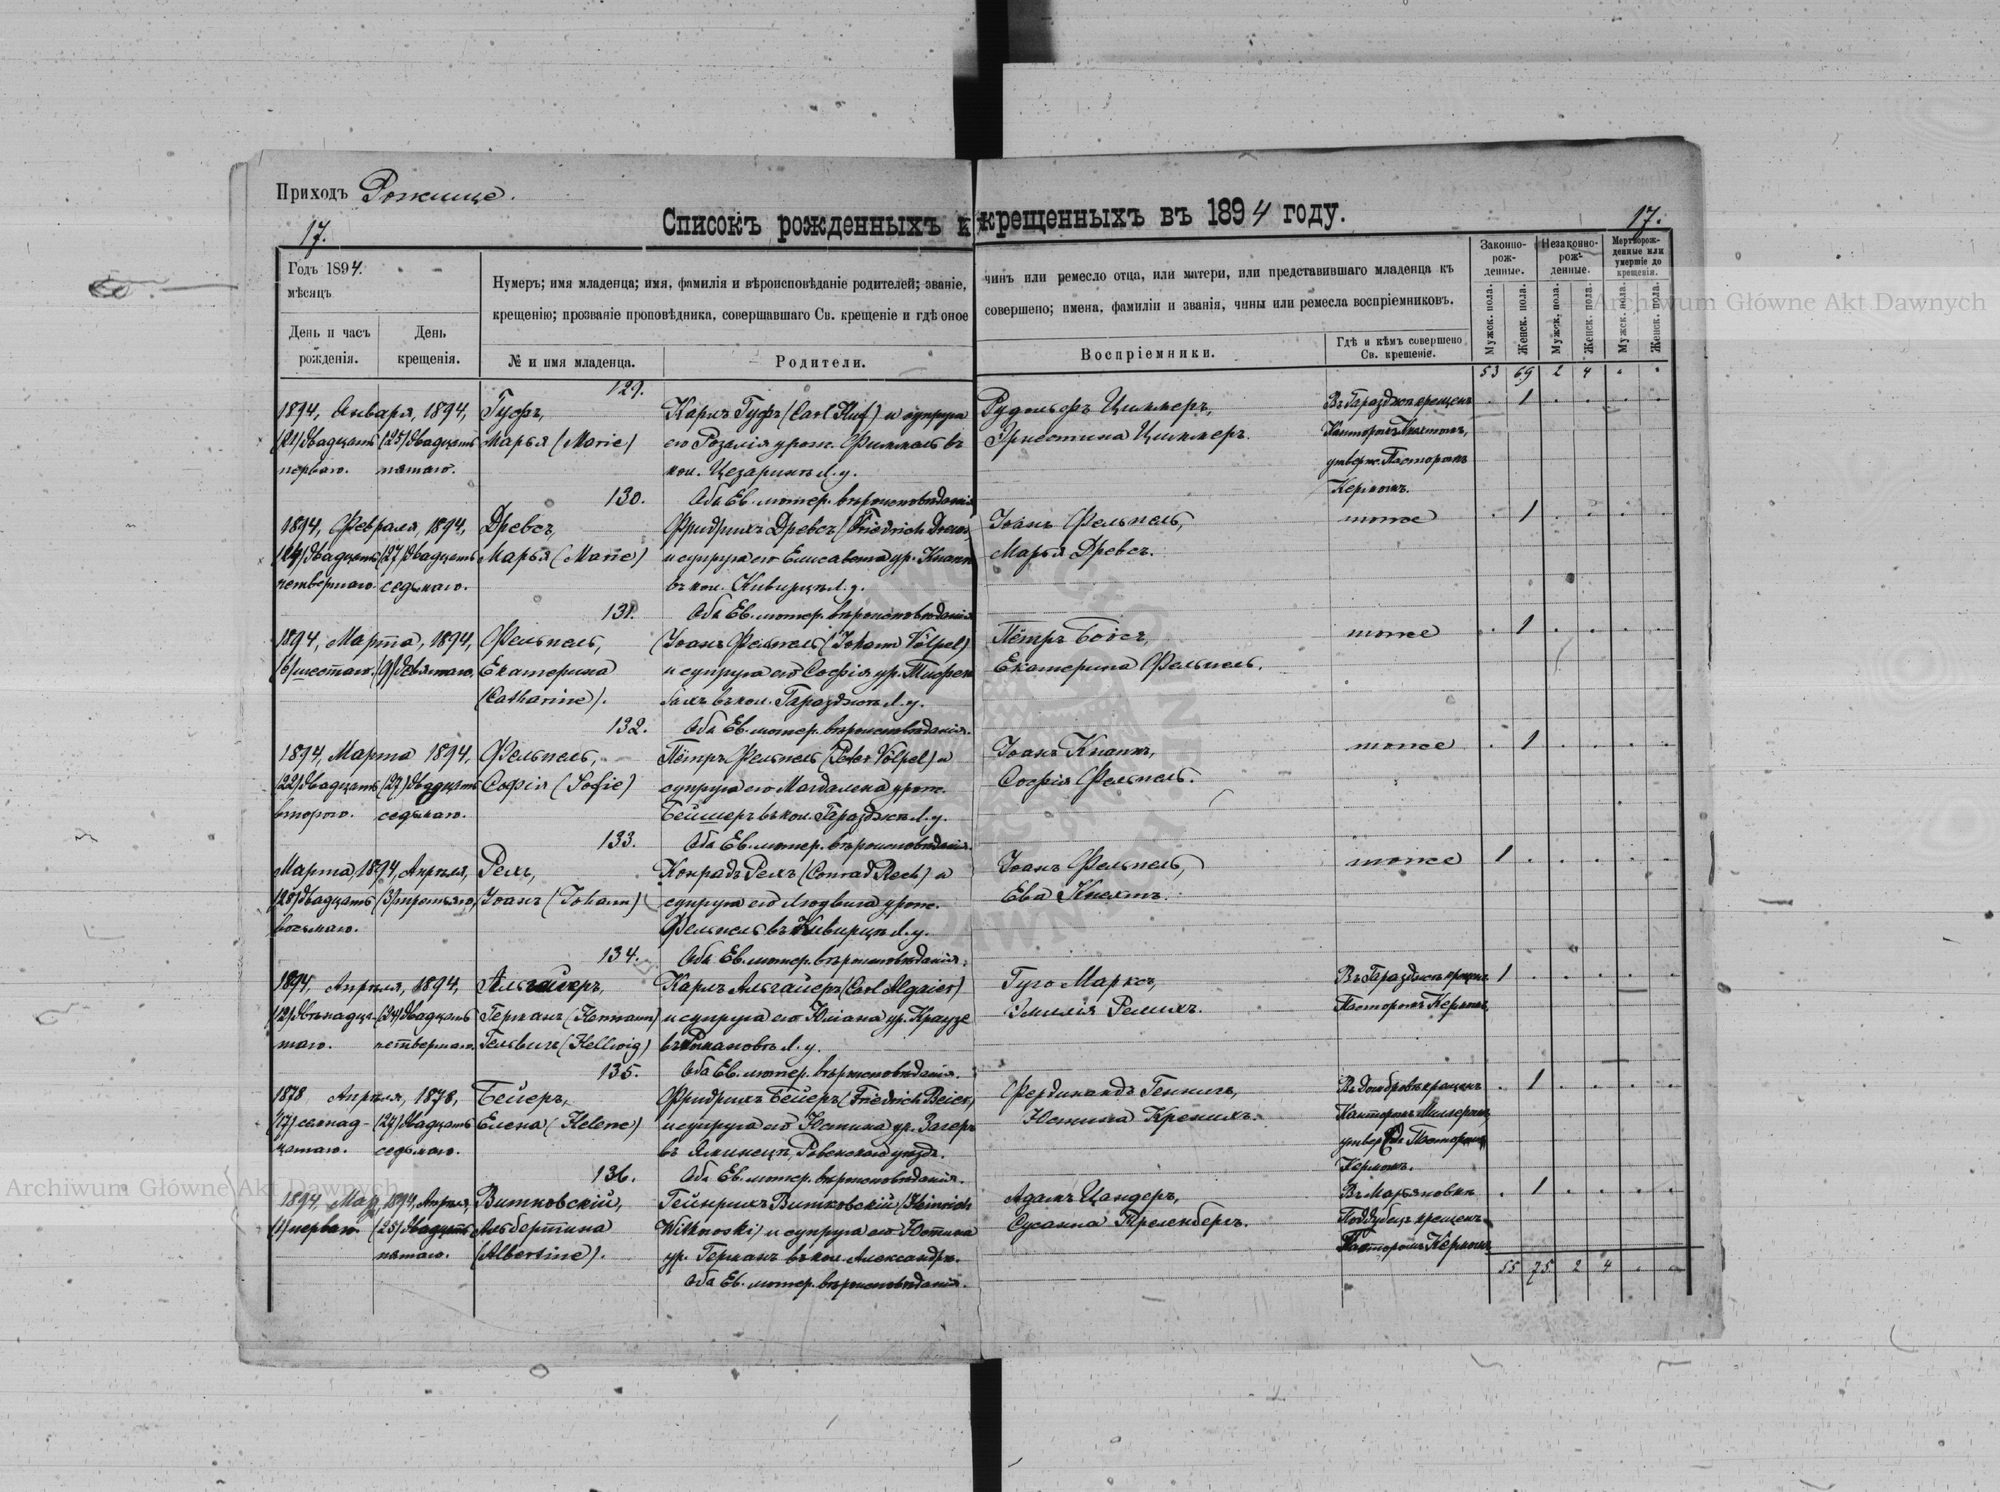 Приходъ Рожище.
17.
Списокъ рожденныхъ и крещенныхъ въ 1894 году.
17.
Годъ 1894.
мѣсяцъ
День и часъ рожденія.
День крещенія.
Нумеръ; имя младенца; имя, фамилія и вѣроисповѣданіе родителей; званіе, чинъ или ремесло отца, или матери, или представившаго младенца къ
крещенію; прозваніе проповѣдника, совершавшаго Св. крещеніе и гдѣ оное совершено; имена, фамиліи и званія, чины или ремесла воспріемниковъ.
№ и имя младенца.
Родители.
Воспріемники.
Гдѣ и кѣмъ совершено Св. крещеніе.
Законно-рож-денные.
Незаконно-рож-денные.
Мертворож-денные или умершіе до крещенія.
Мужск. пола.
Женск. пола.
Мужск. пола.
Женск. пола.
Мужск. пола.
Женск. пола.
53 69 2 4 . .
129.
1894, Января, 1894, Гуфъ, Карлъ Гуфъ (Carl Huf) и супруга Рудольфъ Циммеръ, . 1 . . . .
(21) двадцать (25) двадцать Марья (Marie) его Розалія урож. въ Циммеръ.
перваго. пятаго. кол. Л. у. утверж. Пасторомъ
130. Оба Ев. лютер. вѣроисповѣданія Керномъ.
1894, Февраля, 1894, Древсъ, Фридрихъ Древсъ (Friedrich Drews) Іоанъ Фельпель, тоже . 1 . . . .
(24) двадцать (27) двадцать Марья (Marie) и супруга его Елисавета ур. Кнаппъ Марья Древсъ.
четвертаго. седьмаго. въ кол. Киверцѣ Л. у.
131. Оба Ев. лютер. вѣроисповѣданія
1894, Марта, 1894, Фельпель, Іоанъ Фельпель (Johann Völpel) Пётръ тоже . 1 . . . .
(6) шестаго. (9) девятаго. Екатерина и супруга его Софія ур. Екатерина Фельпель.
(Catharine). въ кол. Гараздже Л. у.
132. Оба Ев. лютер. вѣроисповѣданія.
1894, Марта 1894, Фельпель, Пётръ Фельпель (Peter Völpel) и Іоанъ Кнаппъ, тоже . 1 . . . .
(22) двадцать (27) двадцать Софія (Sofie) супруга его Магдалена урож. Софія Фельпель.
втораго. седьмаго. въ кол. Гараздже Л. у.
133. Оба Ев. лютер. вѣроисповѣданія.
Марта, 1894, Апрѣля, Рехъ, Конрадъ Рехъ (Conrad Rech) и Іоанъ Фельпель, тоже 1 . . . . .
(28) двадцать (3) третьяго Іоанъ (Johann) супруга его Людвига урож. Ева Кнехтъ.
восьмаго. Фельпель въ Киверцѣ Л. у.
134. Оба Ев. лютер. вѣроисповѣданія.
1894, Апрѣля, 1894, Альгайеръ, Карлъ Альгайеръ (Carl Algaier) Гуго Марксъ, 1 . . . . .
(12) двѣнадца- (24) двадцать Германъ (Hermann) и супруга его Юліана ур. Краузе Эмилія Пасторомъ Керномъ.
таго. четвертаго. Гельвигъ (Hellwig) въ Романовѣ Л. у.
135. Оба Ев. лютер. вѣроисповѣданія.
1878 Апрѣля, 1878, Бейеръ, Фридрихъ Бейеръ (Friedrich Beier) Фердинандъ Геннигъ, . 1 . . . .
(17) семнад- (27) двадцать Елена (Helene) и супруга его Юстина ур. Загеръ Юстина Канторомъ Миллеромъ,
цатаго. седьмаго. въ Ровенскаго уѣзд. Пасторомъ
136. Оба Ев. лютер. вѣроисповѣданія. Керномъ.
1894, Мар, 1894, Апрѣля, Витковскій, Гейнрихъ Витковскій (Heinrich Адамъ Цандеръ, Въ Марьяновкѣ . 1 . . . .
(1) перваго (25) двадцать Альбертина Witkowski) и супруга его Юстина Сусанна крещенъ
пятаго. (Albertine). ур. Германъ въ кол. Александр. Пасторомъ Керномъ
Оба Ев. лютер. вѣроисповѣданія. 55 75 2 4 . .
Archiwum Główne Akt Dawnych
Archiwum Główne Akt Dawnych